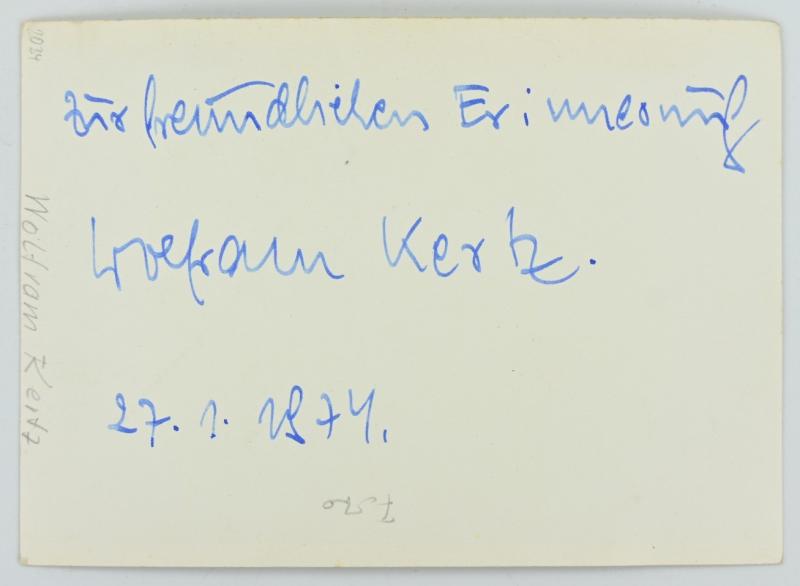 zur freundlichen Erinnerung
Wolfram Kertz.
27. 1. 1974.
Wolfram Kertz